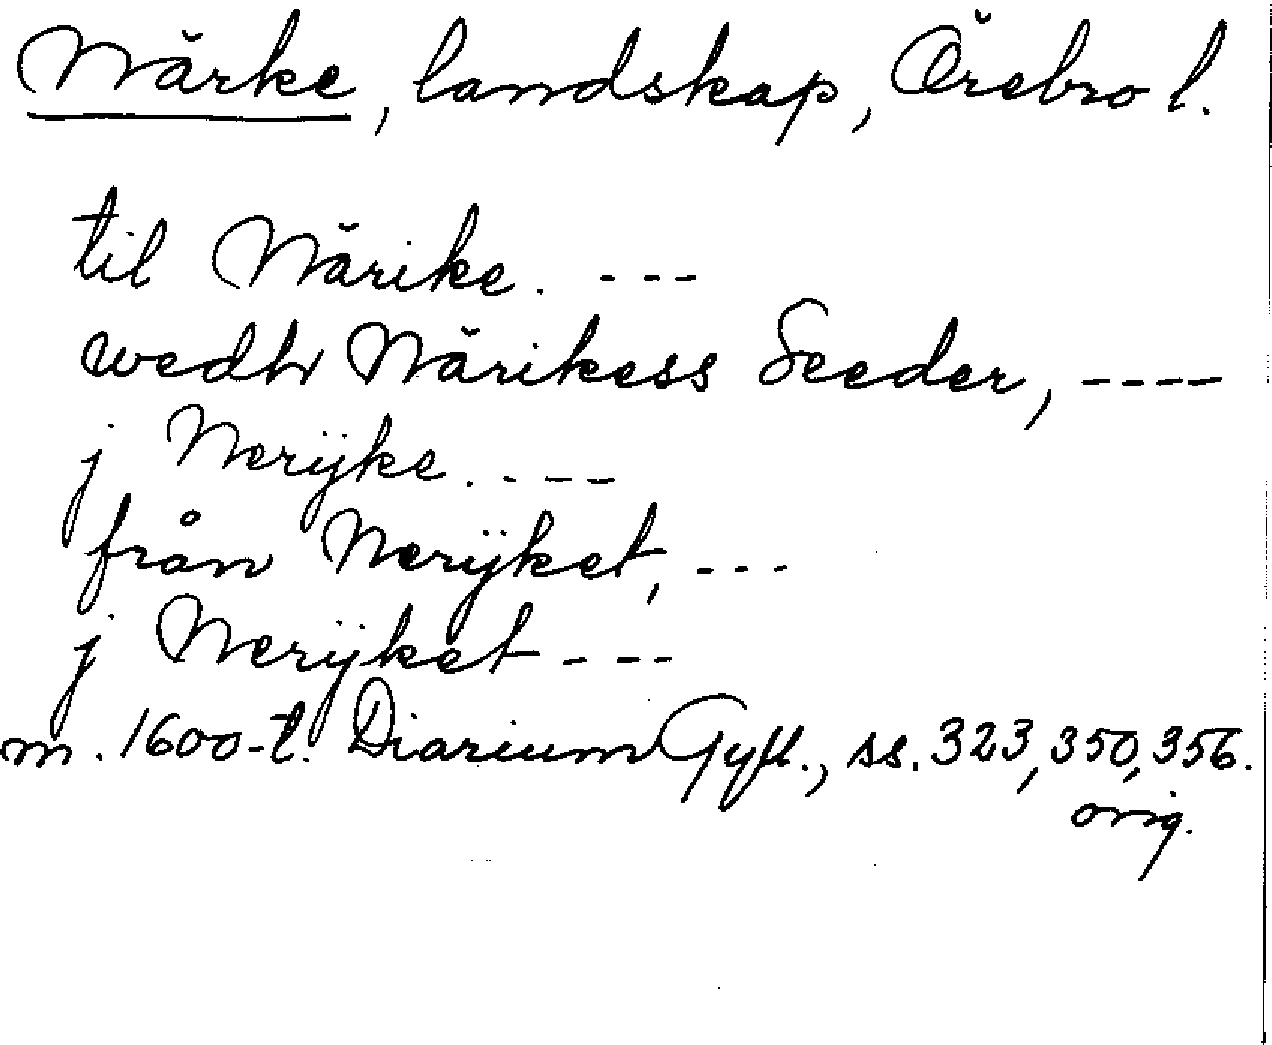 Närke, landskap, Örebro l.
til Närike. ---
wedh Närikess Seeder, ----
j Nerÿke. ----
från Nerÿket, ---
j Nerÿket ---
m. 1600-t. Diarium Gyll., ss. 323, 350, 356.
orig.